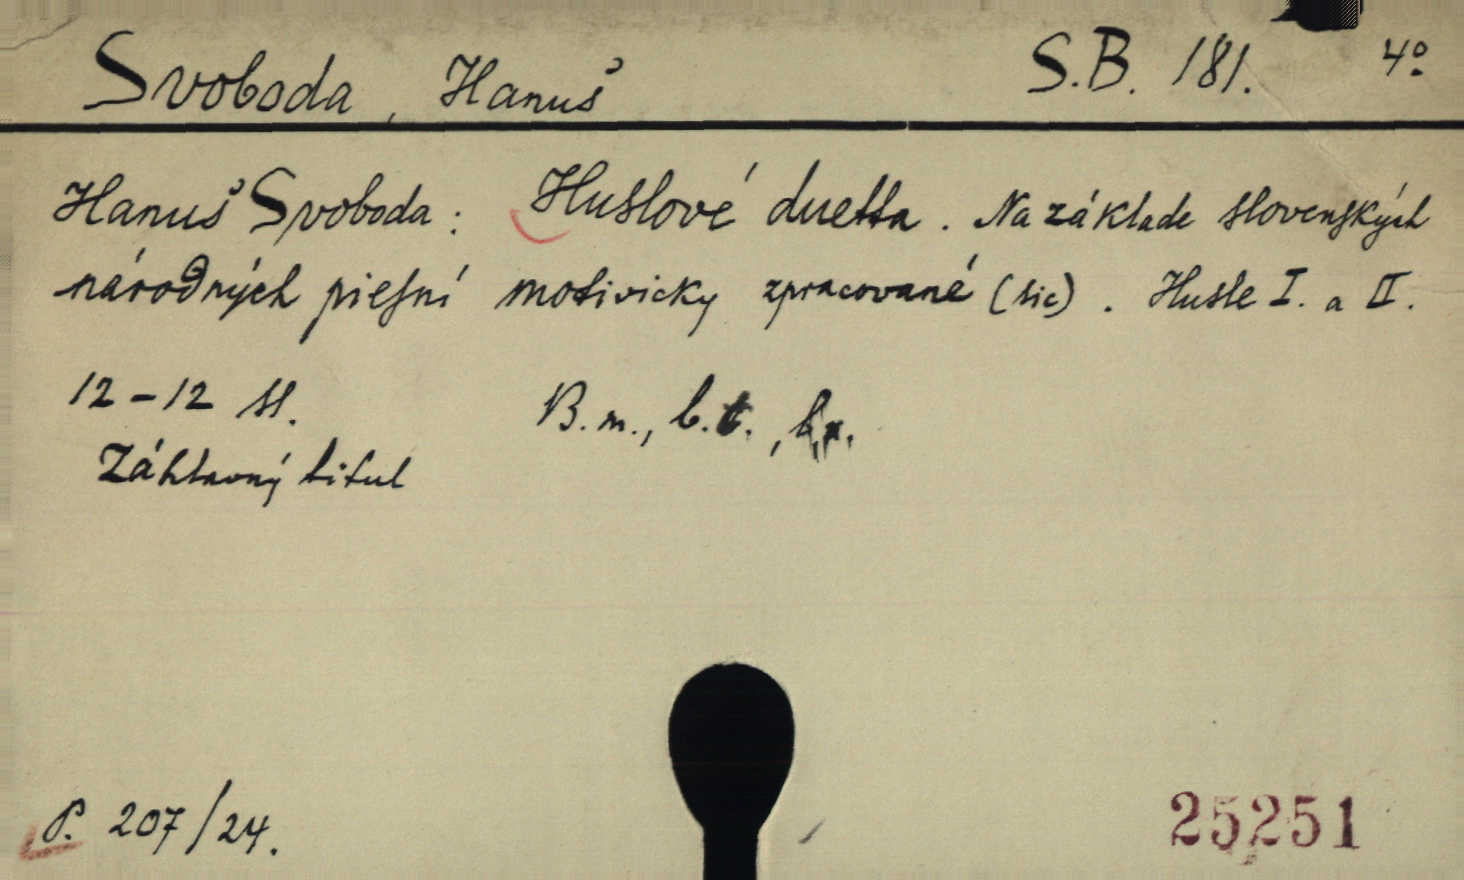 Svoboda, Hanuš S.B. 181. 4°
Hanuš Svoboda: Huslové duetta. Na základe slovenských
národných piesní motivicky zpracované (sic). Husle I. a II.
12-12 st. B.m., b.t., b.r.
Záhlavný titul
P. 207/24. 25251